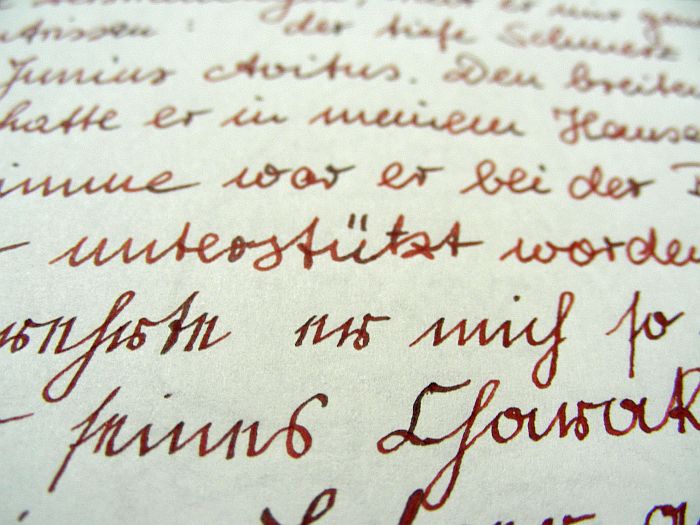 er mir
entrissen: der tiefe Schmerz
Junius Avitus. Den breiten
hatte er in meinem Hause
imme war er bei der
unterstützt worden
er mich so
seines Charak